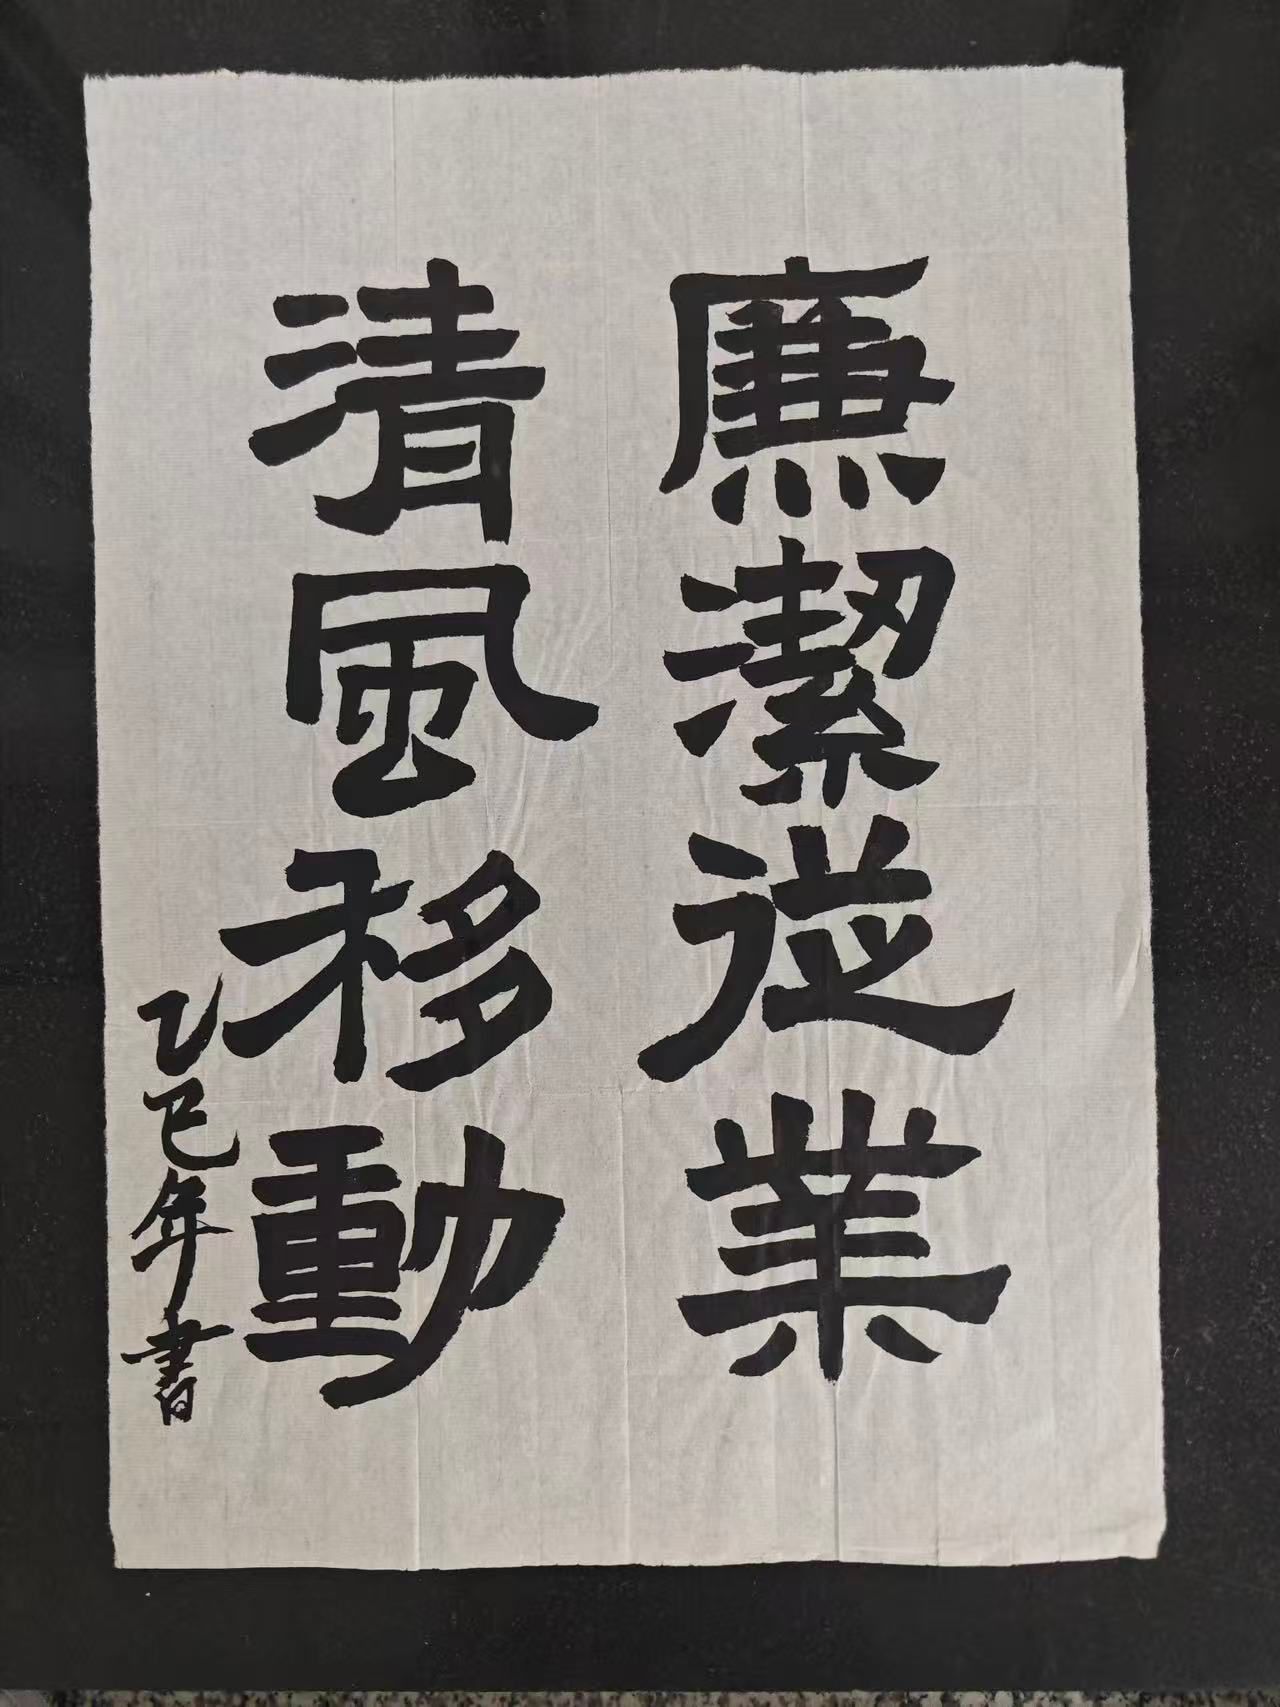 廉潔從業
清風移動
乙巳年書